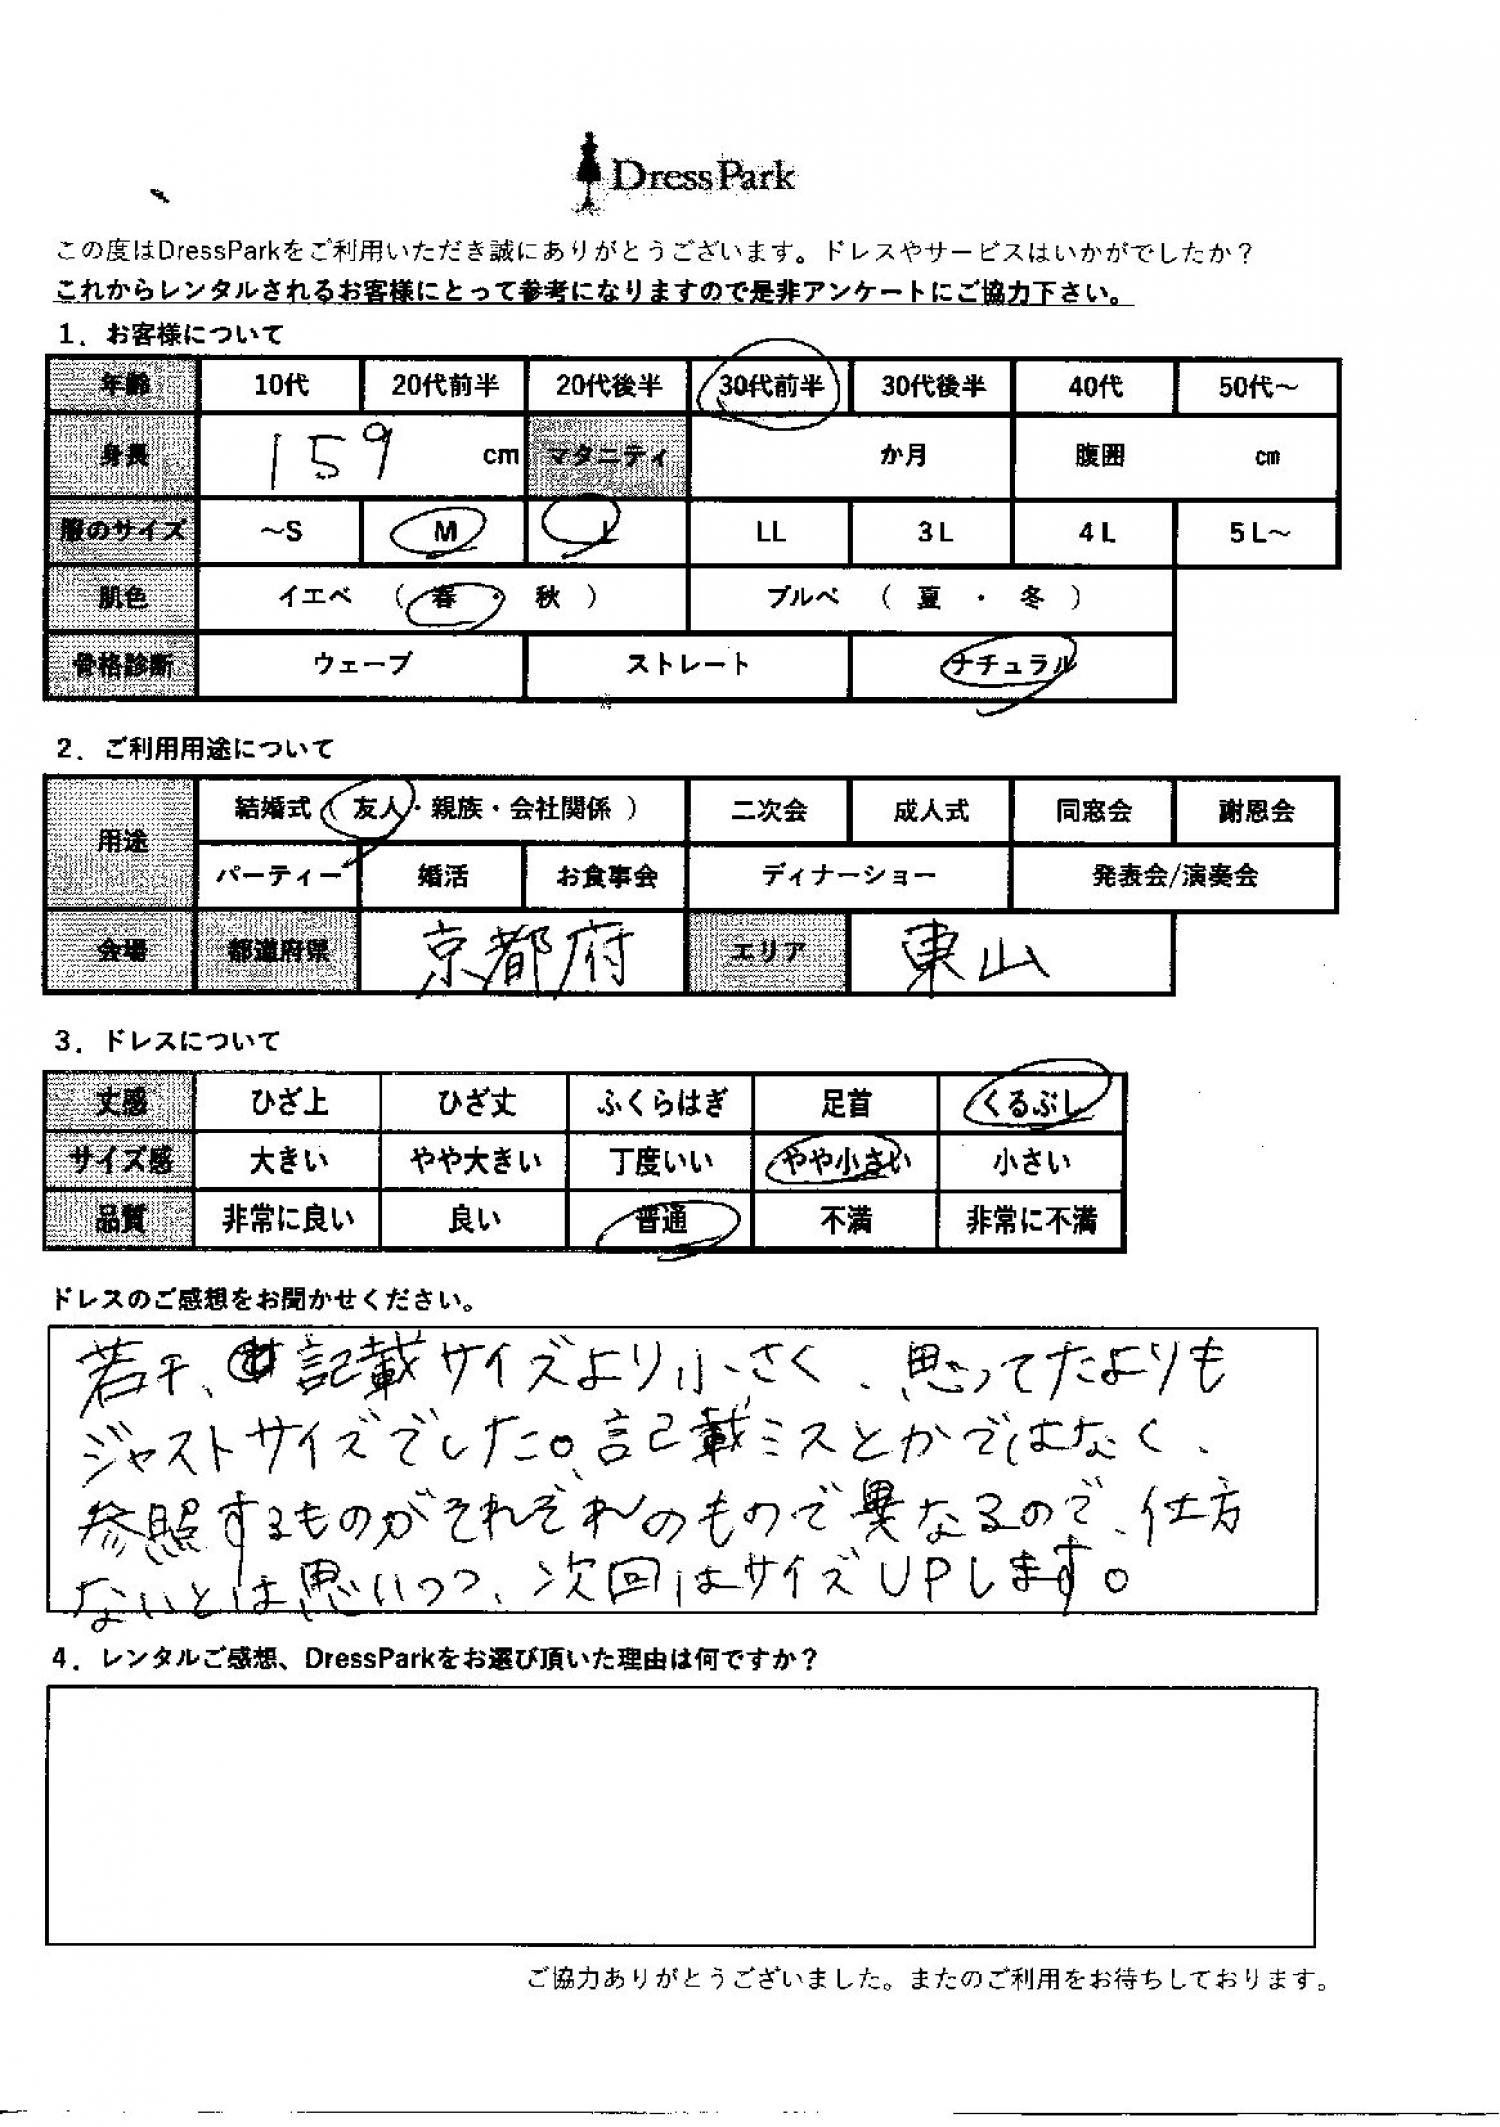 DressPark
この度はDressParkをご利用いただき誠にありがとうございます。ドレスやサービスはいかがでしたか？
これからレンタルされるお客様にとって参考になりますので是非アンケートにご協力下さい。
1．お客様について
年齢 10代 20代前半 20代後半 30代前半 30代後半 40代 50代～
身長 159 cm マタニティ か月 腹囲 cm
服のサイズ ～S M L LL 3L 4L 5L～
肌色 イエベ （ 春 ・ 秋 ） ブルベ （ 夏 ・ 冬 ）
骨格診断 ウェーブ ストレート ナチュラル
2．ご利用用途について
用途 結婚式（ 友人・親族・会社関係 ） 二次会 成人式 同窓会 謝恩会
パーティー 婚活 お食事会 ディナーショー 発表会/演奏会
会場 都道府県 京都府 エリア 東山
3．ドレスについて
丈感 ひざ上 ひざ丈 ふくらはぎ 足首 くるぶし
サイズ感 大きい やや大きい 丁度いい やや小さい 小さい
品質 非常に良い 良い 普通 不満 非常に不満
ドレスのご感想をお聞かせください。
若干、記載サイズより小さく、思ってたよりも
ジャストサイズでした。記載ミスとかではなく、
参照するものがそれぞれのもので異なるので、仕方
ないとは思いつつ、次回はサイズUPします。
4．レンタルご感想、DressParkをお選び頂いた理由は何ですか？
ご協力ありがとうございました。またのご利用をお待ちしております。